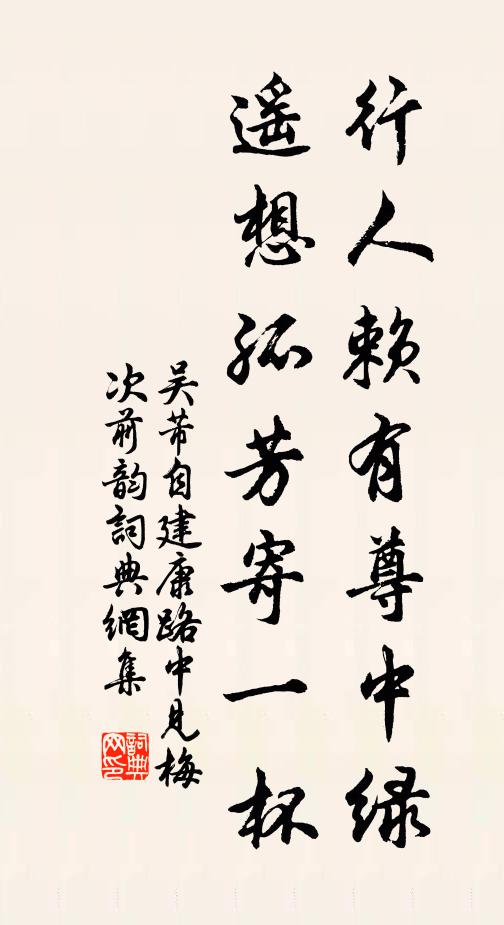 行人赖有尊中绿
遥想孤芳寄一杯
吴芾自建康路中见梅
次前韵詞典網集
詞典
网印